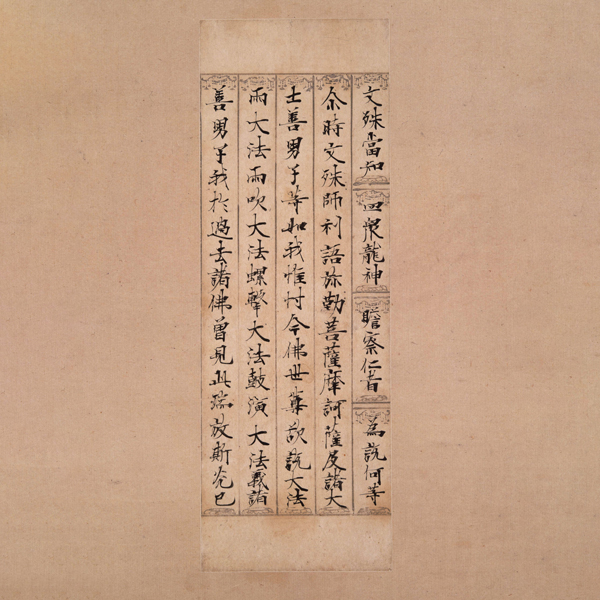 文殊當知 四衆龍神 瞻察仁者 為説何等
尒時文殊師利語弥勒菩薩摩訶薩及諸大
士善男子等如我惟忖今佛世尊欲説大法
雨大法雨吹大法螺擊大法鼓演大法義諸
善男子我於過去諸佛曾見此瑞放斯光已